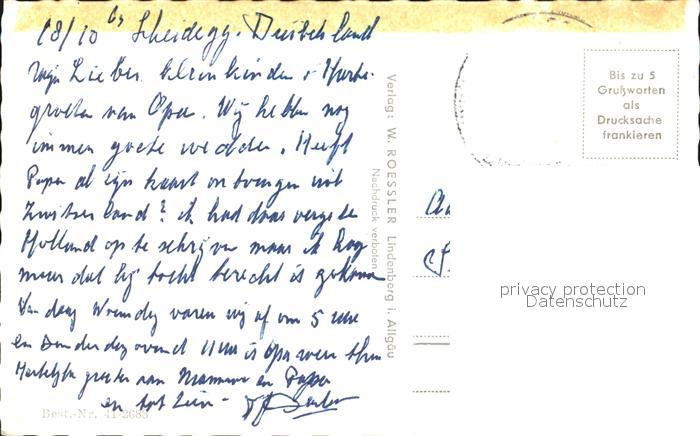 18/10 Scheidegg. Duitschland
Mijn Lieber kleinkinder Harte-
groeten van Opa. Wij hebben nog
immer goede wedder. Heeft
Papa al zijn kaart ontvangen uit
Zwitserland? ik had daar vergeten
Holland op te schrijven maar ik hoop
maar dat hij toch terecht is gekomen
Van daag Woensdag varen wij af om 5 uur
en Donderdag avond 11 uur is opa weer thuis
Hartelijke groeten aan Mamma en Pappa
en tot Zien -
Best.-Nr. 41-2685
Verlag: W. ROESSLER Lindenberg i. Allgäu
Nachdruck verboten
Bis zu 5
Grußworten
als
Drucksache
frankieren
privacy protection
Datenschutz